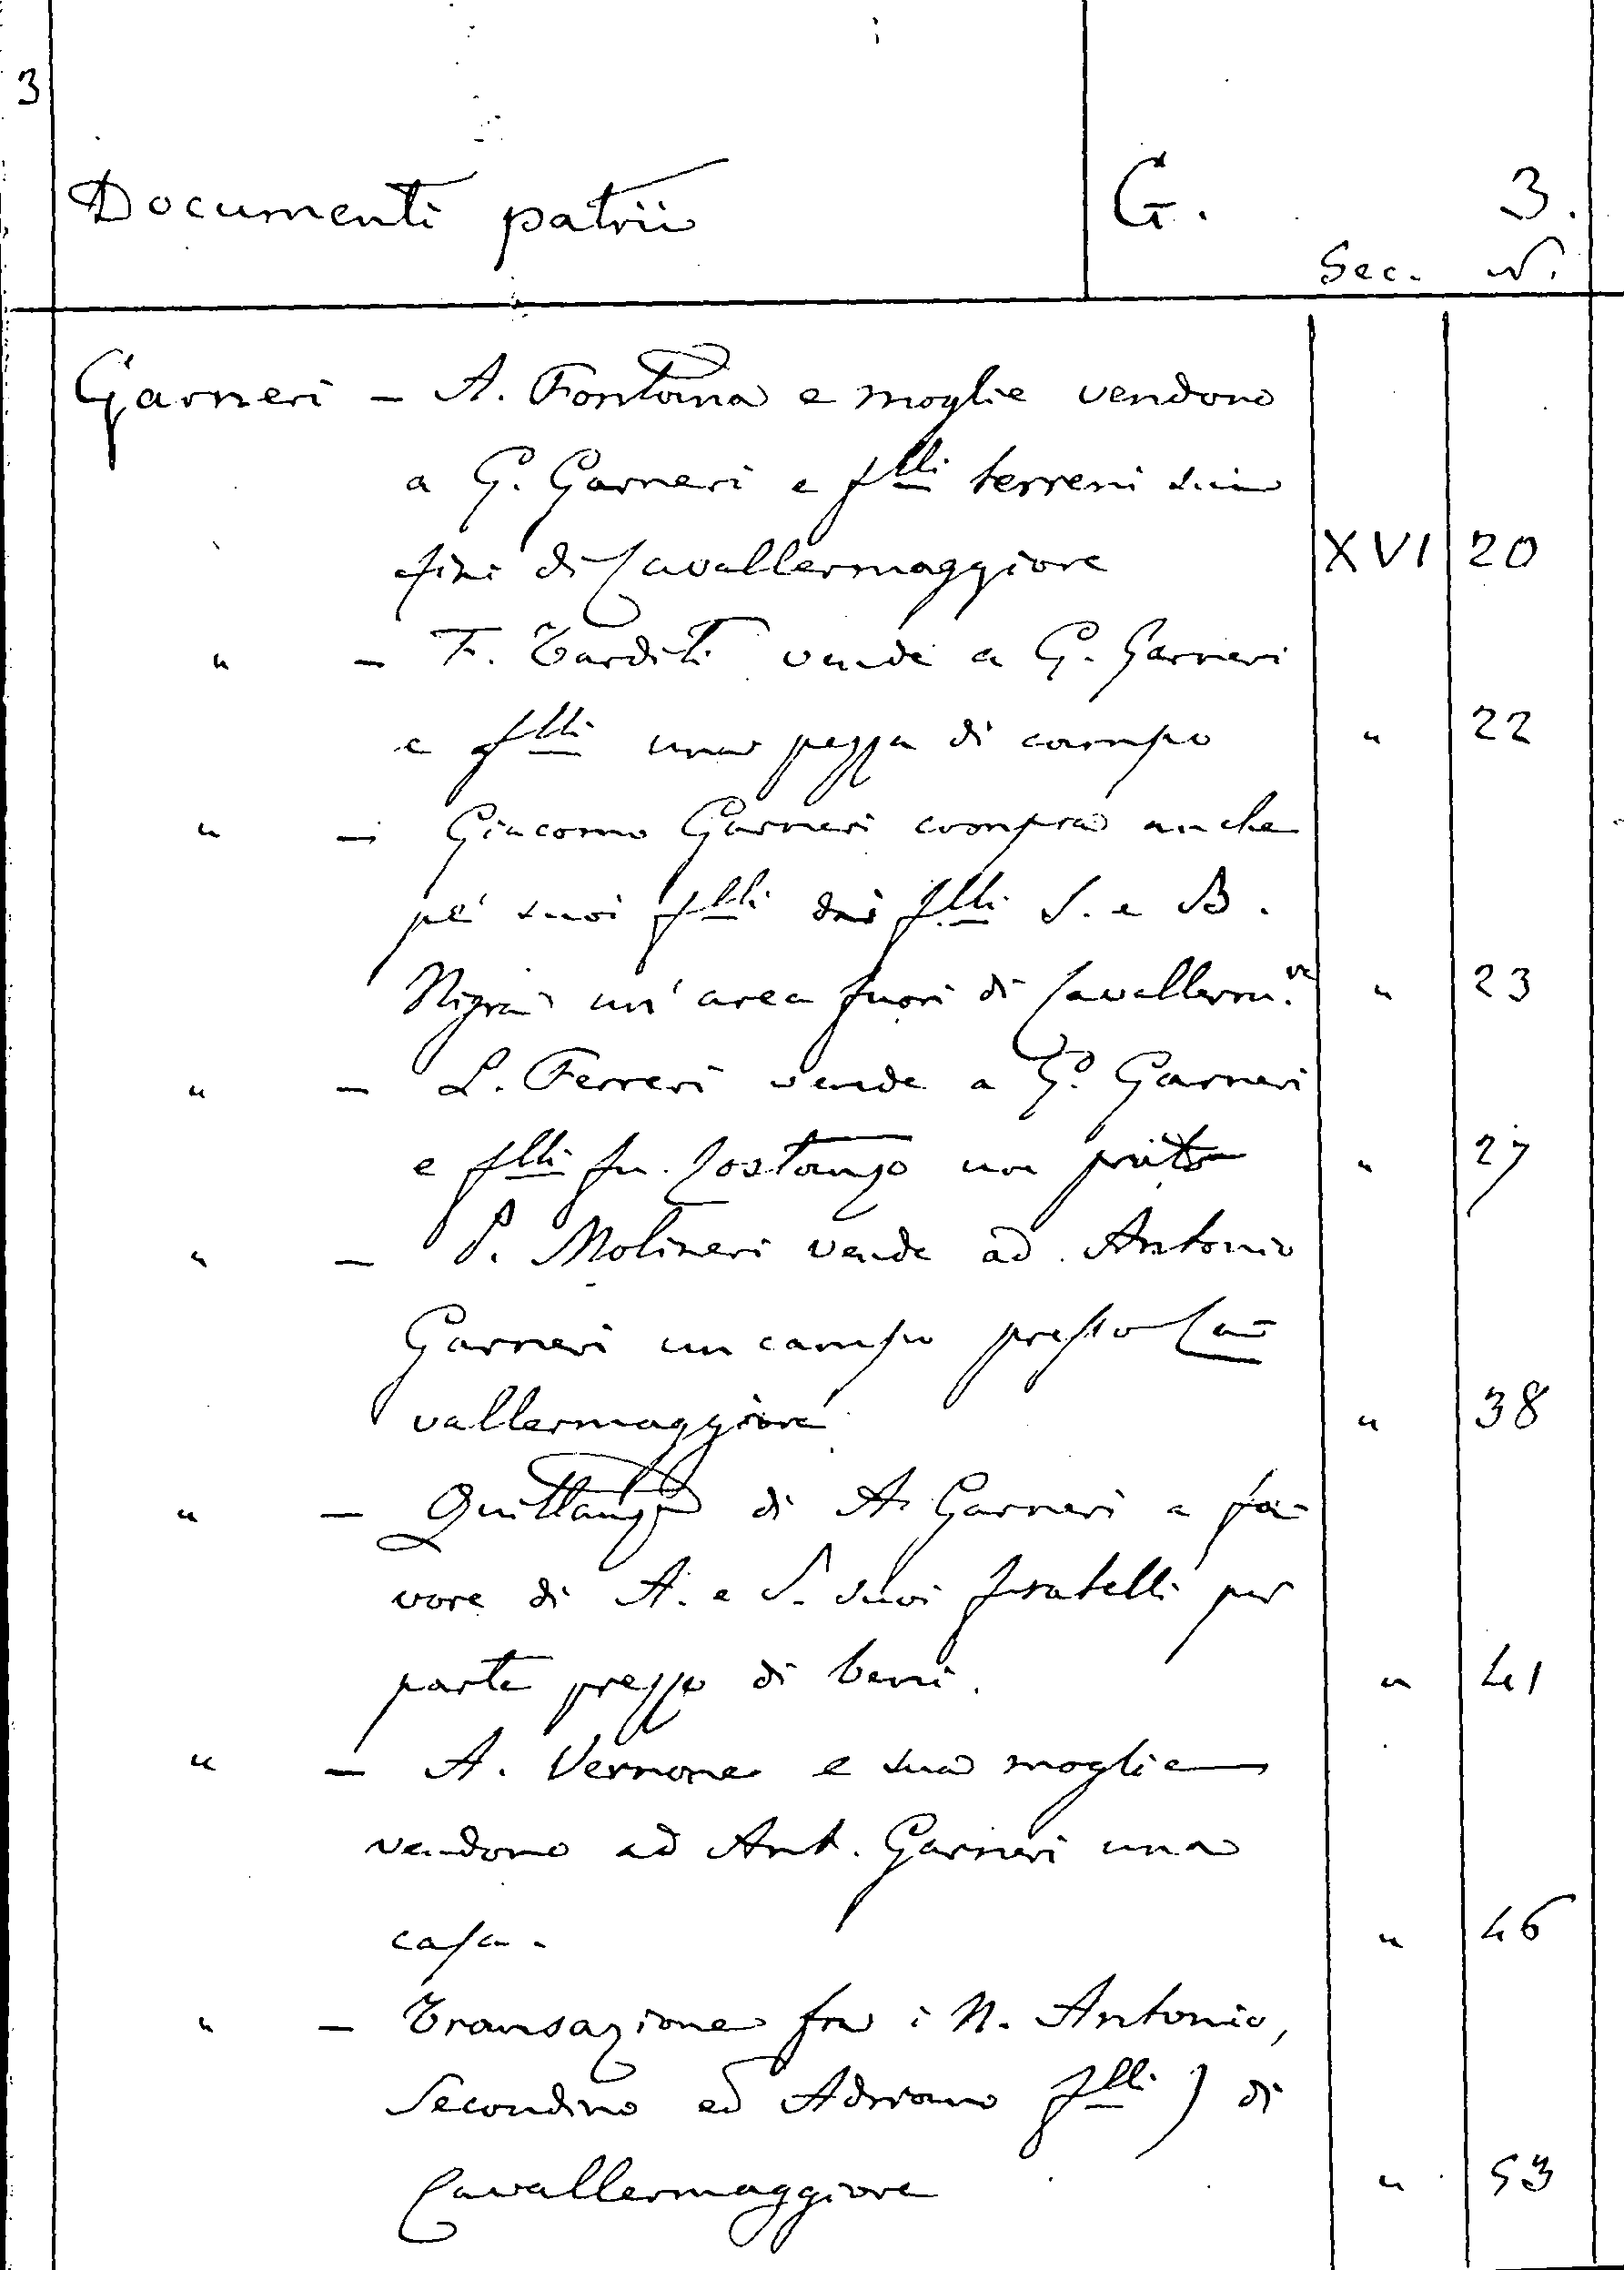 3
Documenti patrii G. 3.
Sec. N.
Garneri - A. Fontana e moglie vendono
a G. Garneri e flli terreni sui
fini di Cavallermaggiore XVI 20
" - F. Tarditi vende a G. Garneri
e flli una pezza di campo " 22
" - Giacomo Garneri compra anche
pe' suoi flli dai flli S. e B.
Nigra un' area fuori di Cavallerm.re " 23
" - L. Ferreri vende a G. Garneri
e flli fu Costanzo un prato " 27
" - P. Molineri vende ad Antonio
Garneri un campo presso Ca-
vallermaggiore " 38
" - Quittanza di A. Garneri a fa-
vore di A. e S. suoi fratelli per
parte prezzo di beni. " 41
" - A. Vernone e sua moglie
vendono ad Ant. Garneri una
casa. " 46
" - Transazione fra i N. Antonio,
Secondino ed Adriano flli ) di
Cavallermaggiore " 53